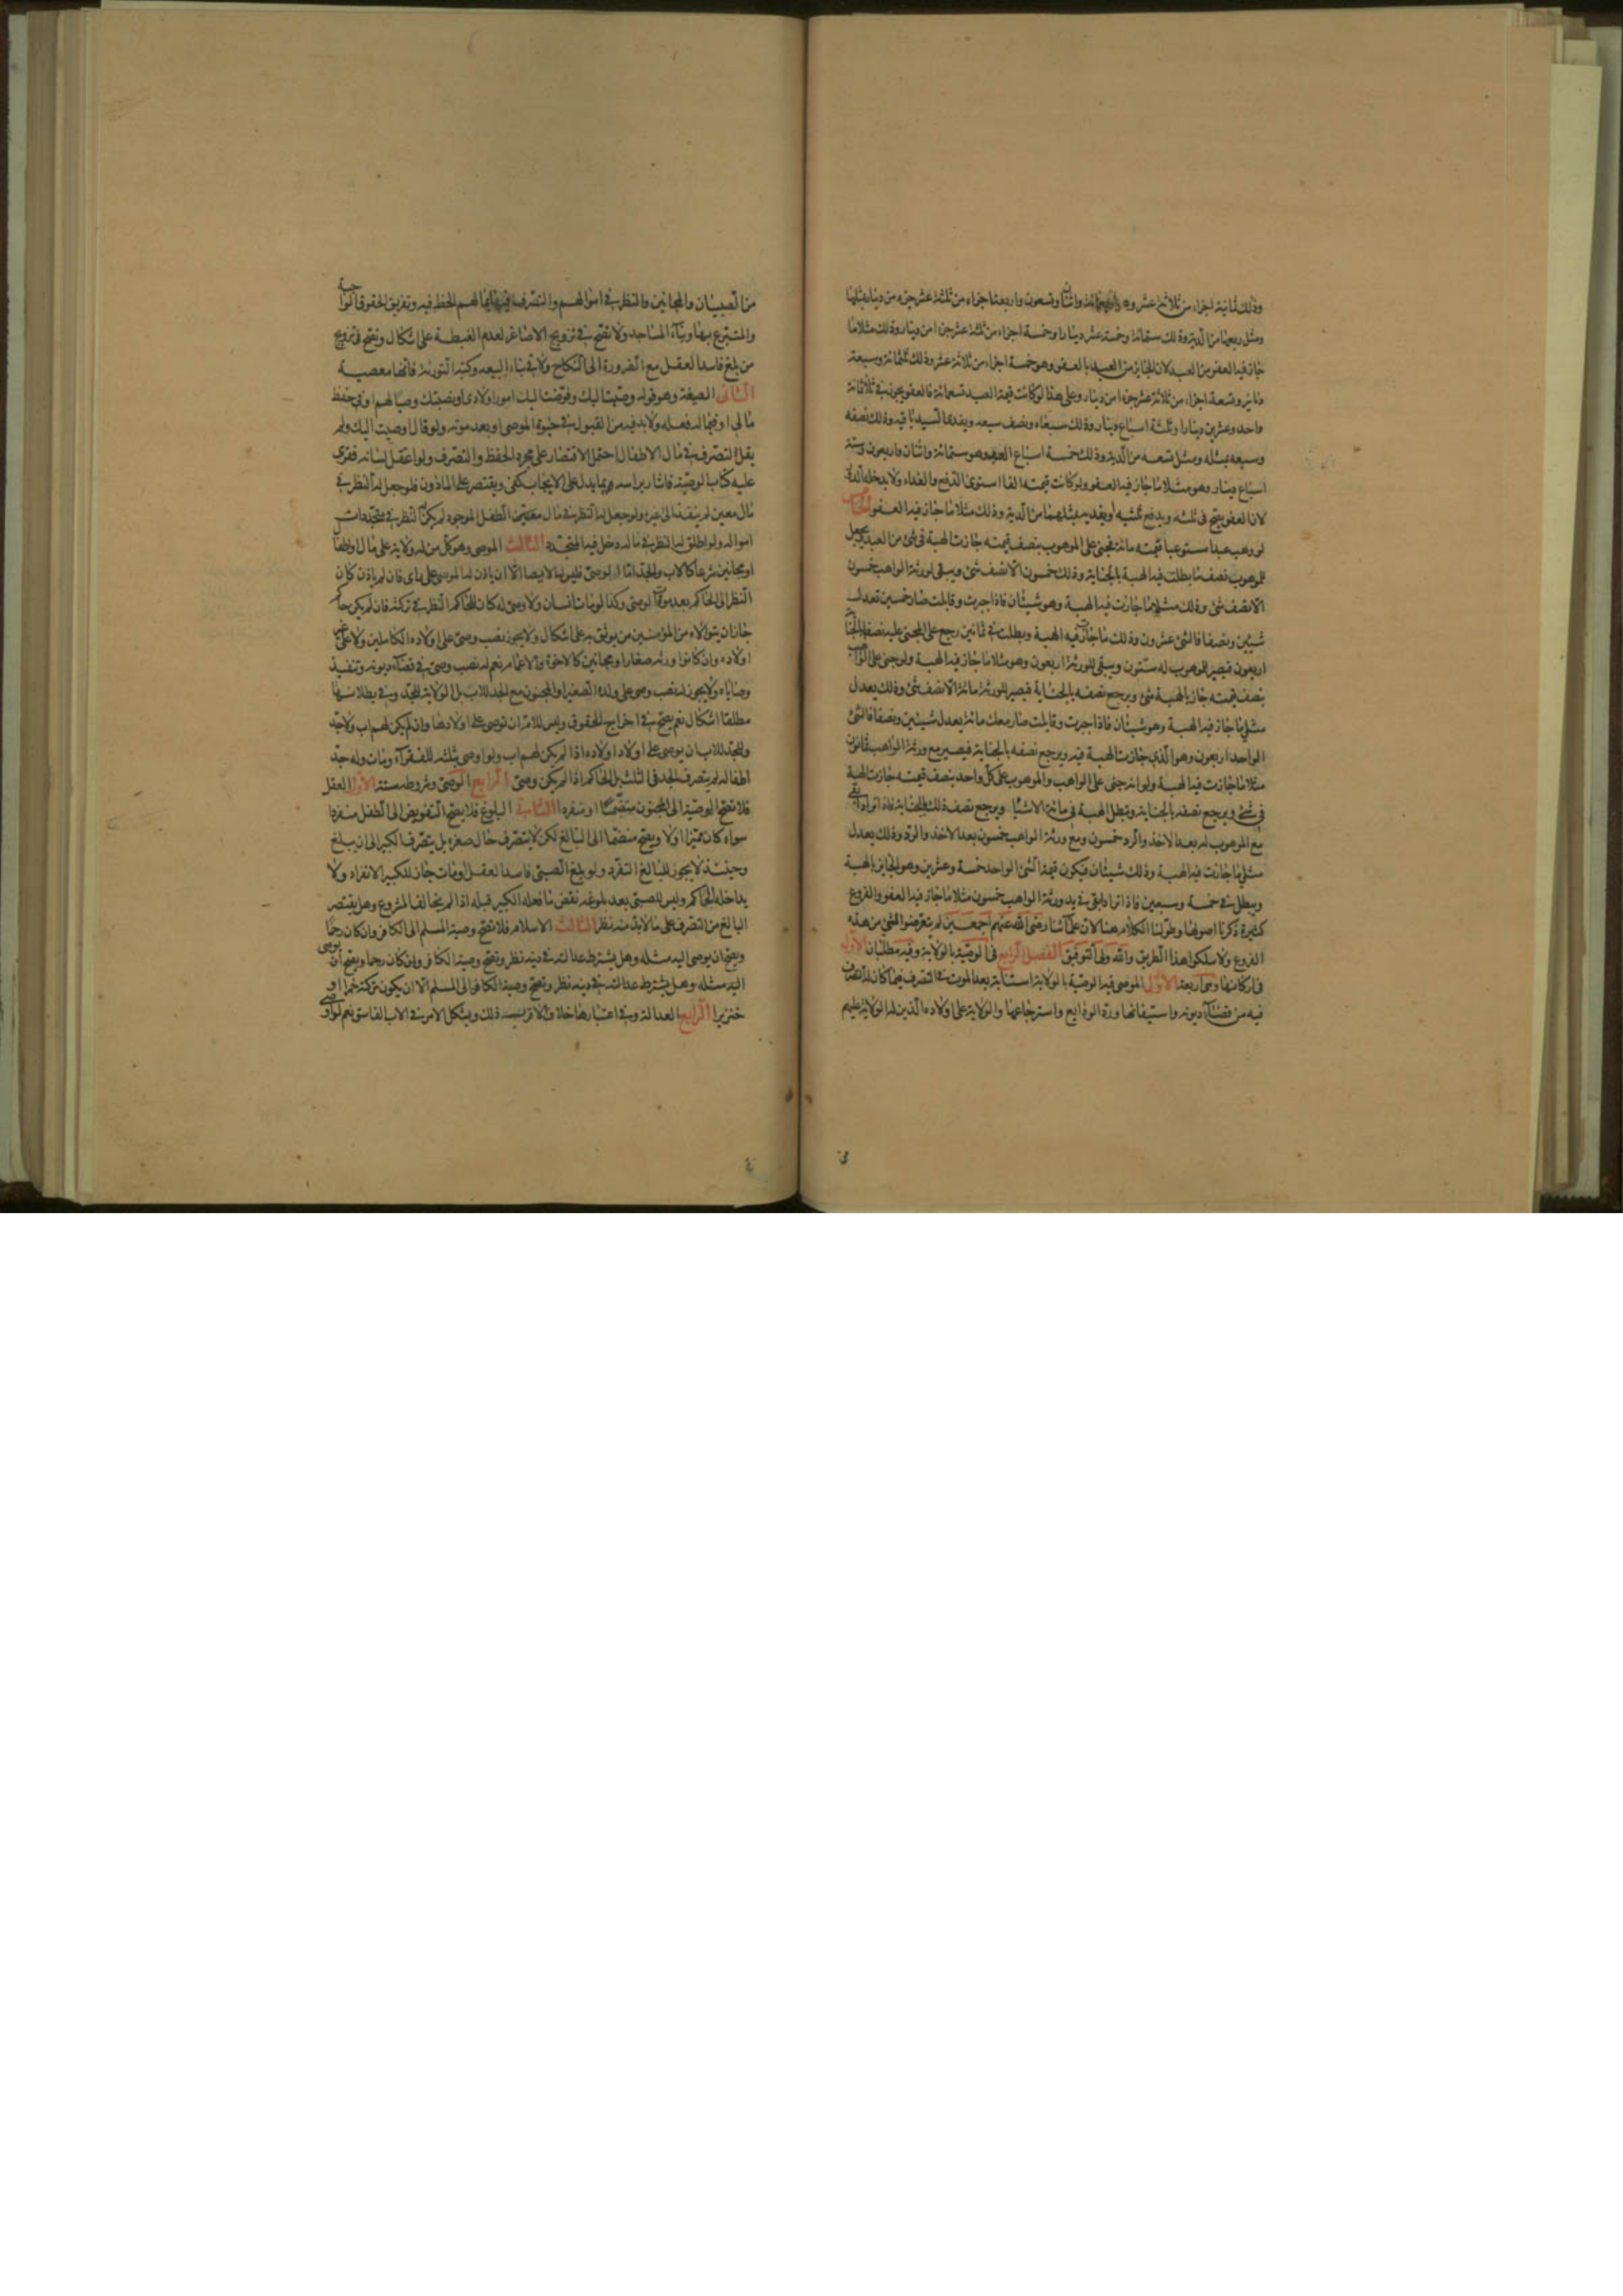 وذلك ثمانية اجزاء من ثلاثة عشر وهو واثنان وتسعون واربعة اجزاء من ثلثة عشر جزء من دينار مثلها
ومثل ربعها من الدية وذلك ستمائة وخمسة عشر دينارا وخمسة اجزاء من ثلثة عشر جزءا من دينار وذلك مثلا ما
جاز فيه العفو من العبد لان الجايز من العبد بالعفو وهو خمسة اجزاء من ثلاثة عشر وذلك ثلثمائة وسبعة
دنانير وتسعة اجزاء من ثلاثة عشر جزءا من دينار وعلى هذا لو كانت قيمة العبد تسعمائة فالعفو يجوز في ثلاثمائة
واحد وعشرين دينارا وثلثة اسباع دينار وذلك سبعاه ونصف سبعه ويفدى السيد باقيه وذلك نصفه
وسبعه بمثله ومثل تسعه من الدية وذلك خمسة اسباع العبد وهو ستمائة واثنان واربعون وستة
اسباع دينار وهو مثلا ما جاز فيه العفو ولو كانت قيمته الفا استوى الدفع والفداء ولا يدخلها الدور
لان العفو يصح في ثلثه ويدفع ثلثيه او يفديه بمثلهما من الدية وذلك مثلا ما جاز فيه العفو الخامس
لو وهب عبدا مستوعبا قيمته مائة فجنى على الموهوب بنصف قيمته جازت الهبة في شئ من العبد ويحصل
للموهوب نصف ما بطلت فيه الهبة بالجناية وذلك خمسون الا نصف شئ ويبقى لورثة الواهب خمسون
الا نصف شئ وذلك مثلا ما جازت فيه الهبة وهو شيئان فاذا جبرت وقابلت صار خمسين تعدل
شيئين ونصفا فالشئ عشرون وذلك ما جازت فيه الهبة وبطلت في ثمانين رجع على المجنى عليه نصفها بالجناية
اربعون فيصير للموهوب له ستون ويبقى للورثة اربعون وهو مثلا ما جاز فيه الهبة ولو جنى على الواهب
بنصف قيمته جاز بالهبة شئ ويرجع نصفه بالجناية فيصير للورثة مائة الا نصف شئ وذلك يعدل
مثلي ما جاز فيه الهبة وهو شيئان فاذا جبرت وقابلت صار معك مائة يعدل شيئين ونصفا فالشئ
الواحد اربعون وهو الذي جازت الهبة فيه ويرجع نصفه بالجناية فيصير مع ورثة الواهب ثمانون
مثلا ما جازت فيه الهبة ولو انه جنى على الواهب والموهوب على كل واحد بنصف قيمته جازت الهبة
في شئ ويرجع نصفه بالجناية وتبطل الهبة في مائة الا شيئا ويرجع نصف ذلك بالجناية فاذا ترادا بقي
مع الموهوب له بعد الاخذ والرد خمسون ومع ورثة الواهب خمسون بعد الاخذ والرد وذلك يعدل
مثلي ما جازت فيه الهبة وذلك شيئان فيكون قيمة الشئ الواحد خمسة وعشرين وهو الجايز بالهبة
ويبطل في خمسة وسبعين فاذا ترادا بقي في يد ورثة الواهب خمسون مثلا ما جاز فيه العفو والفروع
كثيرة ذكرنا اصولها وطولنا الكلام هنا لان علمائنا رضى الله عنهم اجمعين لم يتعرضوا لشئ من هذه
الفروع ولا سلكوا هذا الطريق والله ولي التوفيق الفصل الرابع في الوصية بالولاية وفيه مطلبان الاول
في اركانها وهي اربعة الاول الموصى فيه الوصية بالولاية استنابة بعد الموت في التصرف فيما كان له التصرف
فيه من قضاء ديونه واستيفائها ورد الودايع واسترجاعها والولاية على اولاده الذين له الولاية عليهم
من الصبيان والمجانين والنظر في اموالهم والتصرف فيها بما لهم الحظ فيه وتفريق الحقوق الواجبة
والمتبرع بها وبناء المساجد ولا تصح في تزويج الاصاغر لعدم الغبطة على اشكال وتصح في تزويج
من بلغ فاسد العقل مع الضرورة الى النكاح ولا في بناء البيعه وكتبة التورية فانها معصية
الثاني الصيغة وهو قوله وصيت اليك وفوضت اليك امور اولادي او نصبتك وصيا لهم او في حفظ
مالى او فيما له فعله ولا بد فيه من القبول في حيوة الموصى او بعد موته ولو قال اوصيت اليك ولم
يقل التصرف في مال الاطفال احتمل الاقتصار على مجرد الحفظ والتصرف ولو اعتقل لسانه فقرئ
عليه كتاب الوصية فاشار براسه بما يدل على الايجاب كفى ويقتصر على الماذون فلو جعل له النظر في
مال معين لم ينفذ الى غيره ولو جعل له النظر في مال معين للطفل الموجود لم يكن النظر في متجددات
امواله ولو اطلق له النظر في ماله دخل فيه المتجدد الثالث الموصى وهو كل من له ولاية على مال او اطفال
او مجانين شرعا كالاب والجد اما الوصى فليس له الايصاء الا ان ياذن له الموصى على راى فان لم ياذن كان
النظر الى الحاكم بعد موت الوصى وكذا لو مات انسان ولا وصى له كان للحاكم النظر في تركته فان لم يكن حاكم
جاز ان يتولاه من المؤمنين من يوثق به على اشكال ولا يجوز نصب وصى على اولاده الكاملين ولا على غير
اولاده وان كانوا ورثة صغارا ومجانين كالاخوة والاعمام نعم له نصب وصى في قضاء ديونه وتنفيذ
وصاياه ولا يجوز له نصب وصى على ولده الصغير او المجنون مع الجد للاب بل الولاية للجد وفي بطلانها
مطلقا اشكال نعم يصح في اخراج الحقوق وليس للام ان توصى على اولادها وان لم يكن لهم اب ولا جد
وللجد للاب ان يوصى على اولاد اولاده اذا لم يكن لهم اب ولو اوصى بثلثه للفقراء ومات وله جد
اطفاله لم يتصرف الجد في الثلث بل الحاكم اذا لم يكن وصى الرابع الوصى وشروطه ستة الاول العقل
فلا تصح الوصية الى المجنون منضما او منفردا الثاني البلوغ فلا يصح التفويض الى الطفل منفردا
سواء كان مميزا او لا ويصح منضما الى البالغ لكن لا يتصرف حال صغره بل يتصرف الكبير الى ان يبلغ
وحينئذ لا يجوز للبالغ التفرد ولو بلغ الصبى فاسد العقل او مات جاز للكبير الانفراد ولا
يداخله الحاكم وليس للصبى بعد بلوغه نقض ما فعله الكبير قبله اذا لم يخالف المشروع وهل يقتصر
البالغ من التصرف على ما لا بد منه نظر الثالث الاسلام فلا تصح وصية المسلم الى الكافر وان كان رحما
ويصح ان يوصى اليه مثله وهل يشترط عدالته في دينه نظر وتصح وصية الكافر وان كان رحما ويصح ان يوصى
اليه مثله وهل يشترط عدالته في دينه نظر وتصح وصية الكافر الى المسلم الا ان يكون تركته خمرا او
خنزيرا الرابع العدالة وفي اعتبارها خلاف الاقرب ذلك ويشكل الامر في الاب الفاسق نعم لو اوصى